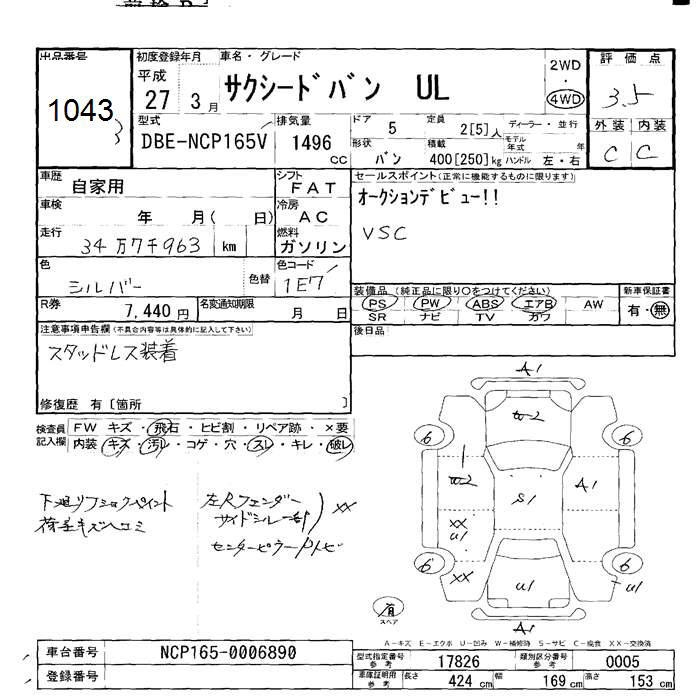 出品番号
1043
初度登録年月
平成
27 3月
車名・グレード
サクシードバン UL
2WD
・
4WD
評価点
3.5
型式
DBE-NCP165V
排気量
1496
cc
ドア
5
定員
2[5]人
ディーラー・並行
形状
バン
積載
400[250]kg
モデル年式 年
ハンドル 左・右
外装 内装
C C
車歴
自家用
シフト
FAT
車検
年 月( 日)
冷房
AC
走行
34万7千963 km
燃料
ガソリン
色
シルバー
色替
色コード
1E7
R券
7,440円
名変通知期限
月 日
セールスポイント(正常に機能するものに限ります)
オークションデビュー!!
VSC
装備品(純正品に限り○をつけてください)
PS PW ABS エアB AW
SR ナビ TV カワ
新車保証書
有・無
後日品
注意事項申告欄(不具合内容等は具体的に記入して下さい)
スタッドレス装着
修復歴 有〔箇所 〕
検査員記入欄
FW キズ・飛石・ヒビ割・リペア跡・×要
内装 キズ・汚レ・コゲ・穴・スレ・キレ・破レ
荷室キズヘコミ
XX
A1
W2
6 6
1
W2
S1
A1
XX
U1
6 6
XX
U1
U1
A1
有
スペア
A-キズ E-エクボ U-凹み W-補修跡 S-サビ C-腐食 XX-交換済
車台番号
NCP165-0006890
登録番号
型式指定番号
参考
17826
類別区分番号
参考
0005
車庫証明用
参考
長さ
424cm
幅
169cm
高さ
153cm